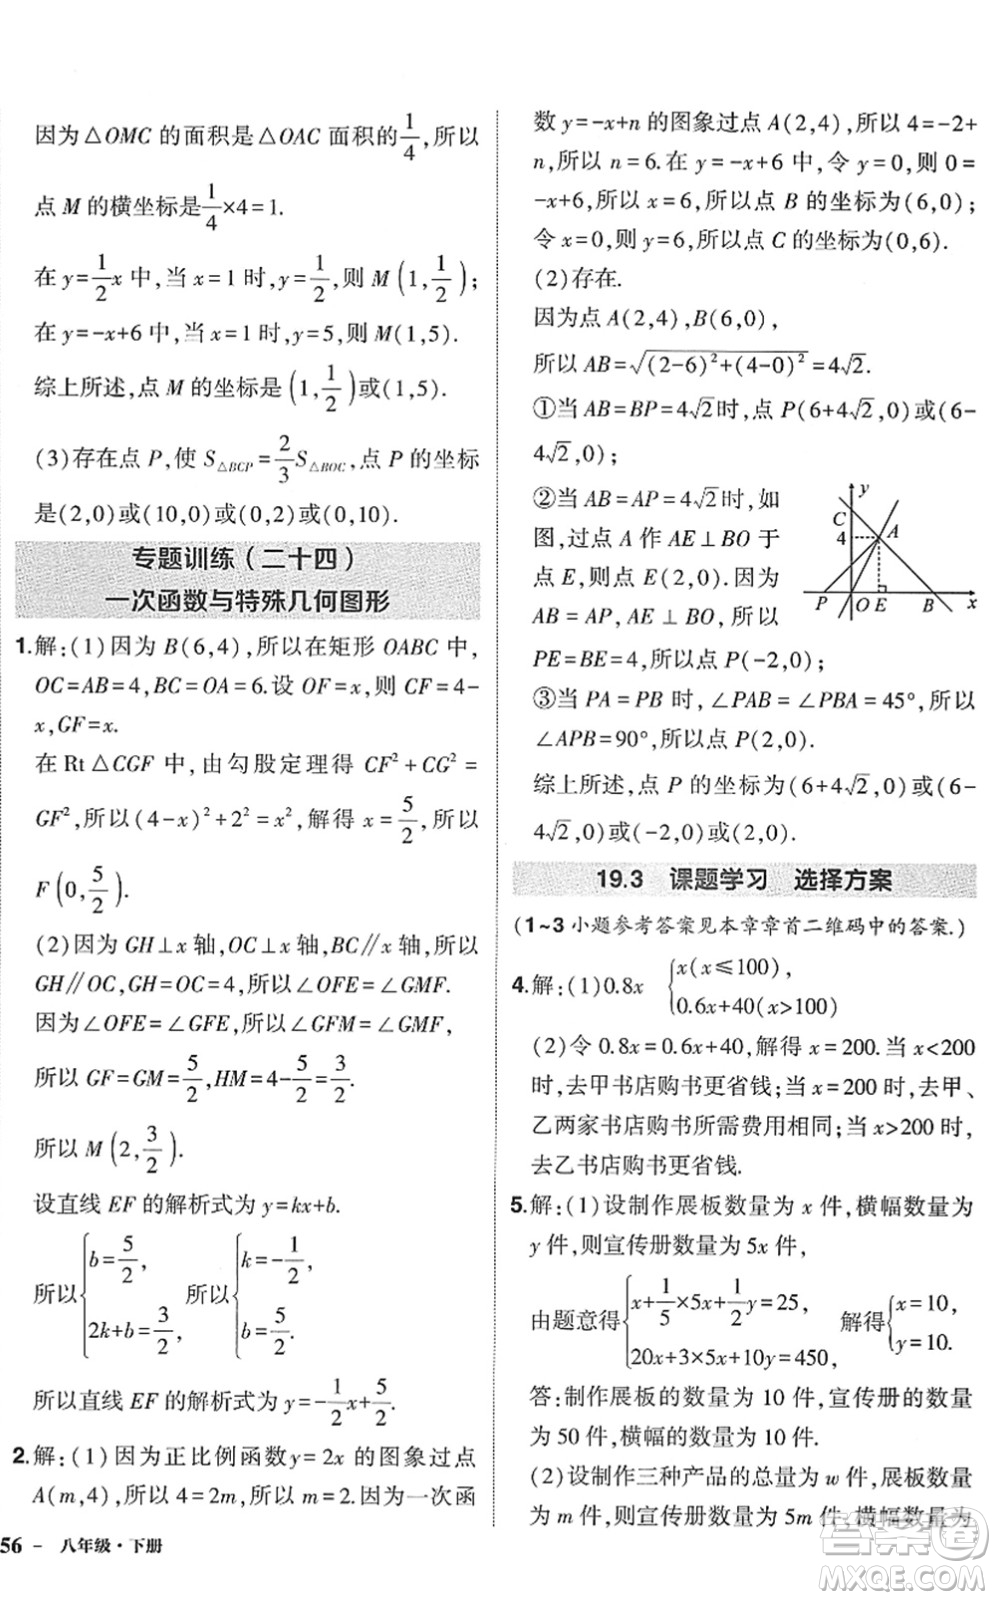 因为△OMC 的面积是△OAC 面积的1/4,所以
点 M 的横坐标是1/4×4=1.
在 y=1/2x 中,当 x=1 时,y=1/2,则 M(1,1/2);
在 y=-x+6 中,当 x=1 时,y=5,则 M(1,5).
综上所述,点 M 的坐标是(1,1/2)或(1,5).
(3)存在点 P,使 S△BCP=2/3S△BOC,点 P 的坐标
是(2,0)或(10,0)或(0,2)或(0,10).
专题训练(二十四)
一次函数与特殊几何图形
1.解:(1)因为 B(6,4),所以在矩形 OABC 中,
OC=AB=4,BC=OA=6.设 OF=x,则 CF=4-
x,GF=x.
在 Rt△CGF 中,由勾股定理得 CF²+CG²=
GF²,所以(4-x)²+2²=x²,解得 x=5/2,所以
F(0,5/2).
(2)因为 GH⊥x 轴,OC⊥x 轴,BC∥x 轴,所以
GH∥OC,GH=OC=4,所以∠OFE=∠GMF.
因为∠OFE=∠GFE,所以∠GFM=∠GMF,
所以 GF=GM=5/2,HM=4-5/2=3/2.
所以 M(2,3/2).
设直线 EF 的解析式为 y=kx+b.
所以{b=5/2, 2k+b=3/2, 所以{k=-1/2, b=5/2.
所以直线 EF 的解析式为 y=-1/2x+5/2.
2.解:(1)因为正比例函数y=2x 的图象过点
A(m,4),所以 4=2m,所以 m=2.因为一次函
56 - 八年级·下册
数 y=-x+n 的图象过点 A(2,4),所以 4=-2+
n,所以 n=6.在 y=-x+6 中,令 y=0,则 0=
-x+6,所以 x=6,所以点 B 的坐标为(6,0);
令 x=0,则 y=6,所以点 C 的坐标为(0,6).
(2)存在.
因为点 A(2,4),B(6,0),
所以 AB=√((2-6)²+(4-0)²)=4√2.
①当 AB=BP=4√2时,点 P(6+4√2,0)或(6-
4√2,0);
②当 AB=AP=4√2时,如
图,过点 A 作 AE⊥BO 于
点 E,则点 E(2,0).因为
AB=AP,AE⊥BO,所以
PE=BE=4,所以 P(-2,0);
y
C
4
A
P
O
E
B
x
③当 PA=PB 时,∠PAB=∠PBA=45°,所以
∠APB=90°,所以点 P(2,0).
综上所述,点 P 的坐标为(6+4√2,0)或(6-
4√2,0)或(-2,0)或(2,0).
19.3 课题学习 选择方案
(1~3 小题参考答案见本章章首二维码中的答案.)
4.解:(1)0.8x {x(x≤100), 0.6x+40(x>100)
(2)令 0.8x=0.6x+40,解得 x=200.当 x<200
时,去甲书店购书更省钱;当 x=200 时,去甲、
乙两家书店购书所需费用相同;当 x>200 时,
去乙书店购书更省钱.
5.解:(1)设制作展板数量为 x 件,横幅数量为
y 件,则宣传册数量为 5x 件,
由题意得{x+1/5×5x+1/2y=25, 20x+3×5x+10y=450, 解得{x=10, y=10.
答:制作展板的数量为 10 件,宣传册的数量
为 50 件,横幅的数量为 10 件.
(2)设制作三种产品的总量为 w 件,展板数量
为 m 件,则宣传册数量为 5m 件,横幅数量为
答案圈
MXQE.COM